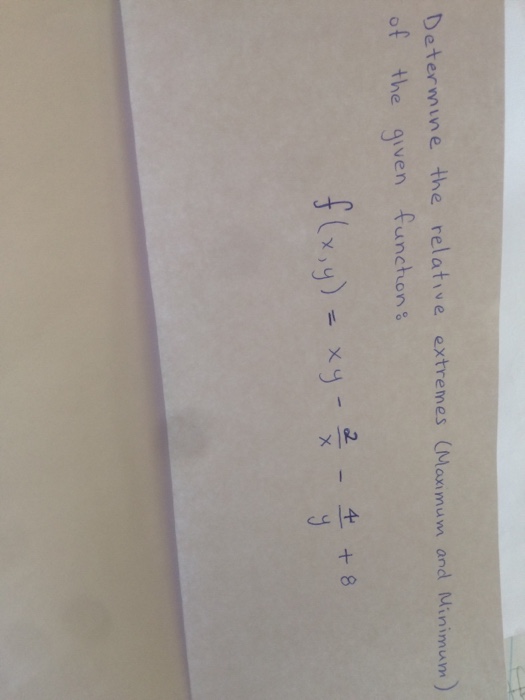 Determine the relative extremes (Maximum and Minimum)
of the given function:
f(x,y) = xy - 2/x - 4/y + 8